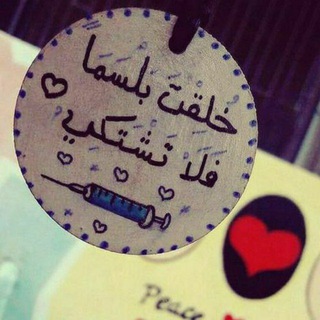 خُلقتَ بلسَمَا
فَلَا تشتكي
Peace